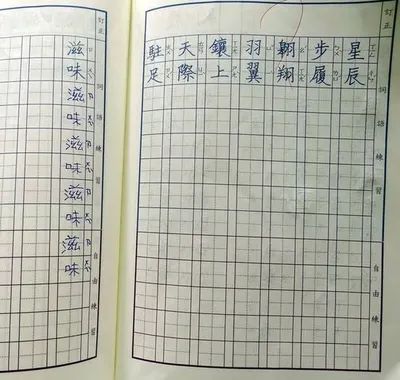 訂正
星辰
步履
翱翔
羽翼
鑲上
天際
駐足
詞語練習
自由練習
訂正
滋味滋味滋味滋味滋味
詞語練習
自由練習